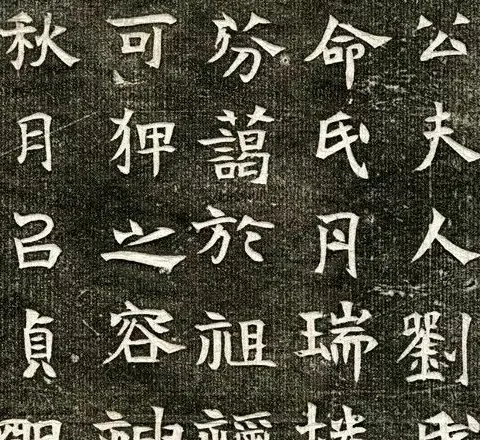 公夫人劉
命氏丹瑞
藹於祖
可狎之容神
秋月召貞